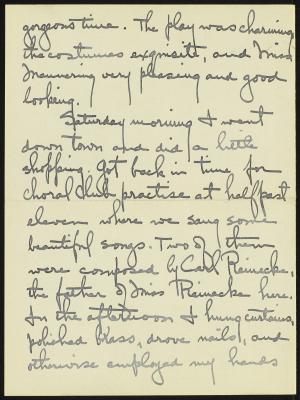 gorgeous time. The play was charming,
the costumes exquisite, and Miss
Mannering very pleasing and good
looking.
Saturday morning I went
down town and did a little
shopping. Got back in time for
choral club practise at half past
eleven where we sang some
beautiful songs. Two of them
were composed by Carl Reinecke,
the father of Miss Reinecke here.
In the afternoon I hung curtains,
polished brass, drove nails, and
otherwise employed my hands